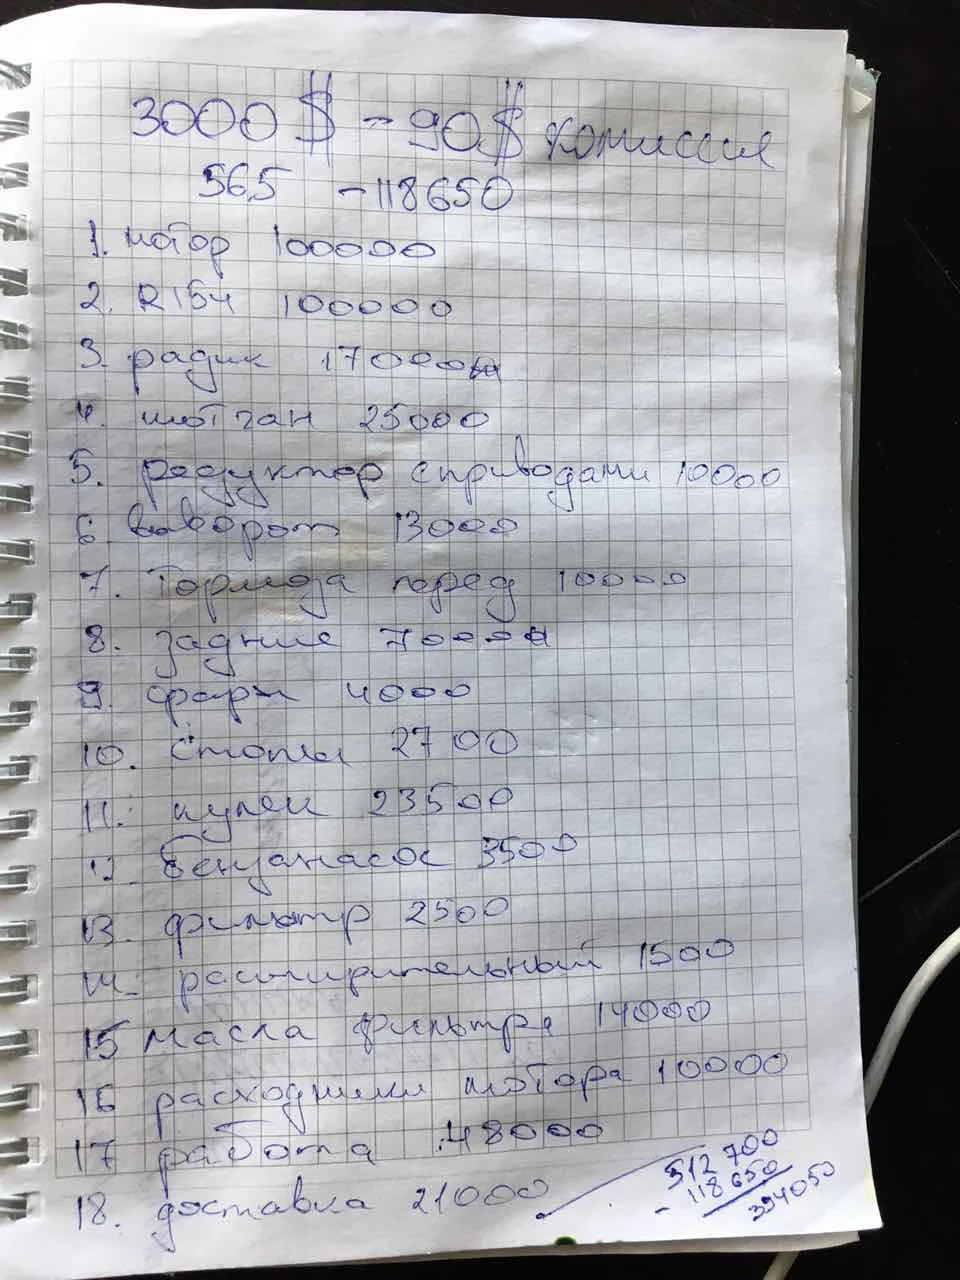 3000 $ - 90 $ комиссия
56,5 - 118650
1. мотор 100000
2. R154 100000
3. радик 17000
4. шотган 25000
5. редуктор с приводами 10000
6 выворот 13000
7. Тормоза перед 10000
8. задние 7000
9. фары 4000
10. Стопы 2700
11. кулек 23500
12 бензанасос 3500
13. фильтр 2500
14. расширительный 1500
15 масла фильтра 14000
16 расходники мотора 10000
17 работа 48000
18. доставка 21000
512 700
- 118 650
394050